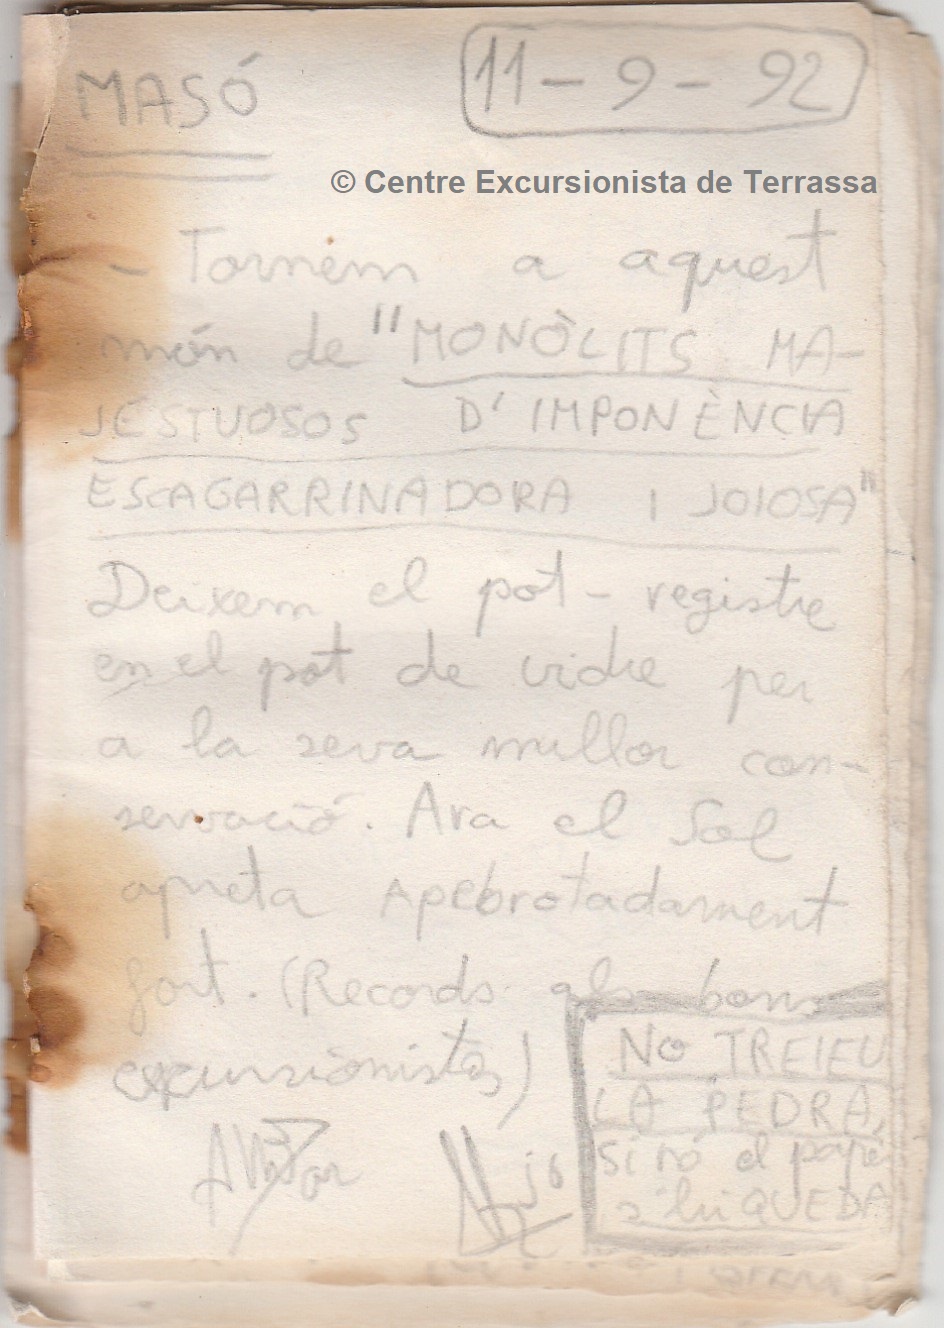 MASÓ
11 - 9 - 92
© Centre Excursionista de Terrassa
- Tornem a aquest
món de "MONÒLITS MA-
JESTUOSOS D'IMPONÈNCIA
ESCAGARRINADORA I JOIOSA"
Deixem el pot - registre
en el pot de vidre per
a la seva millor con-
servació. Ara el Sol
apreta Apebrotadament
fort. (Records als bons
excursionistes)
NO TREIEU
LA PEDRA,
si nó el paper
s'hi QUEDA